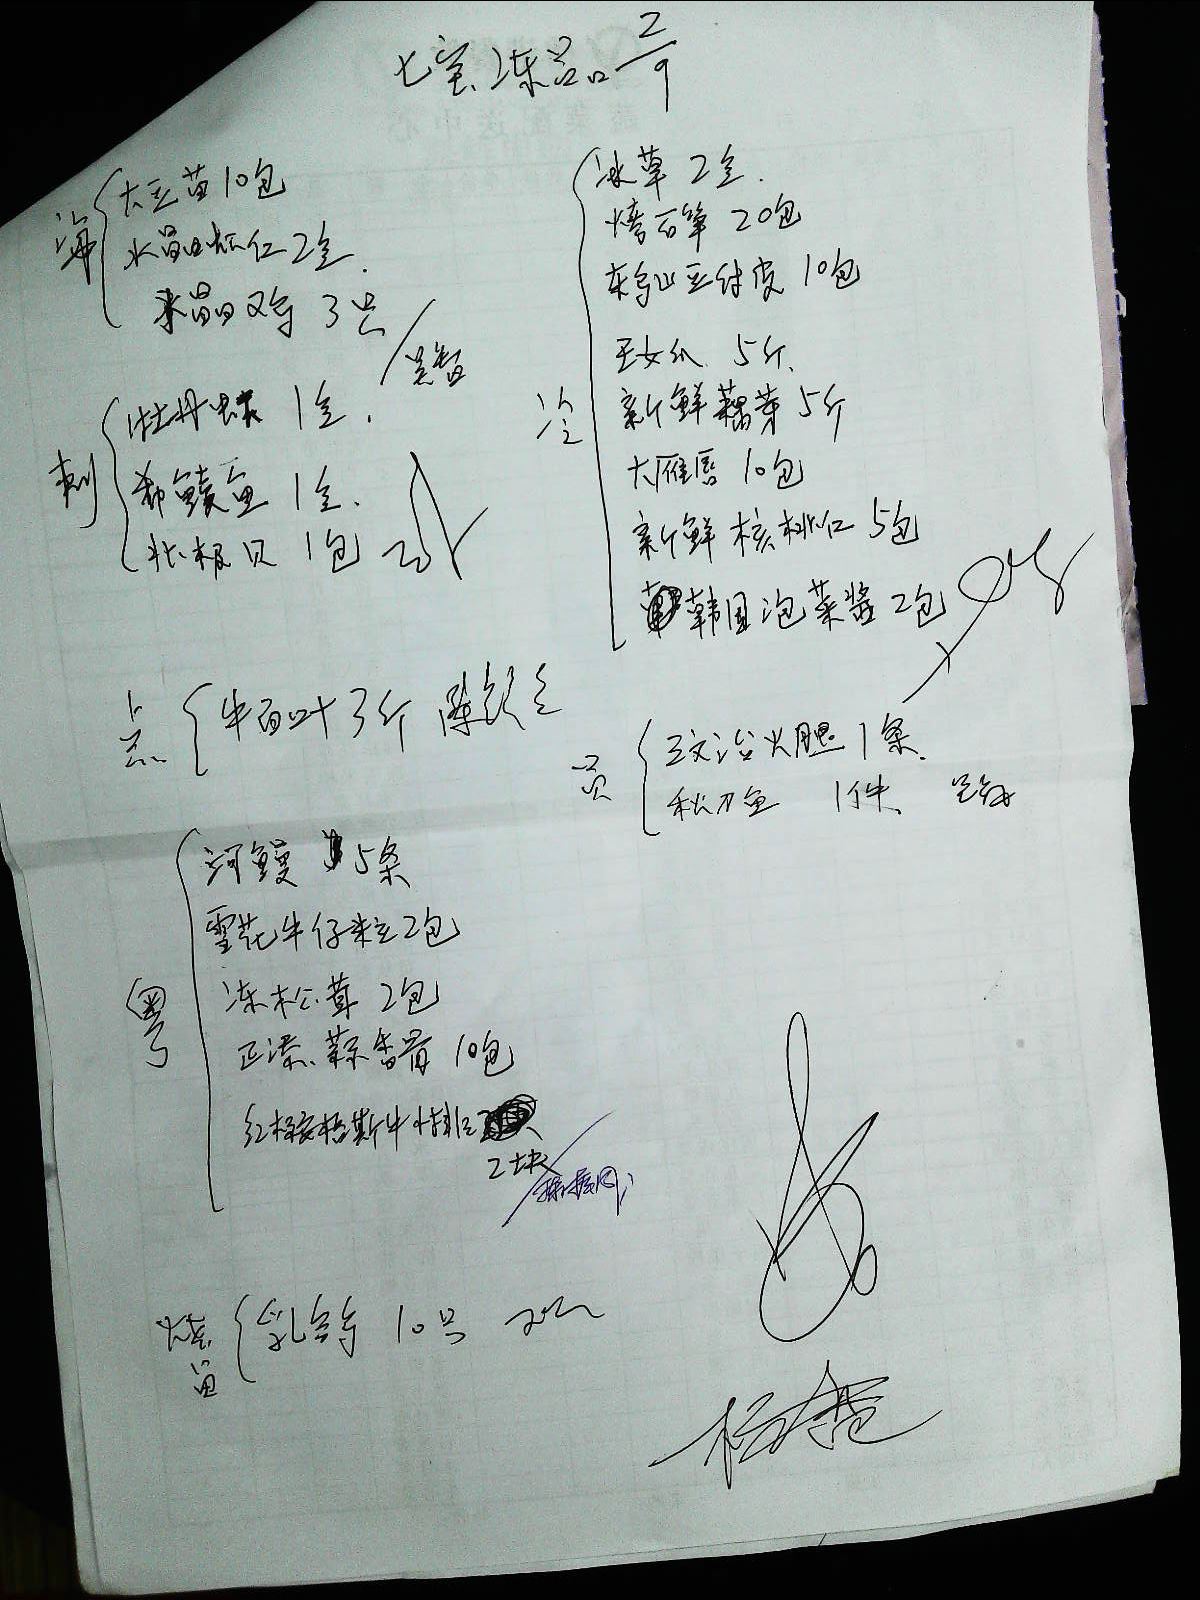 七宝冻品 2/9
海
大豆苗 10包
水晶虾仁 2盒.
水晶鸡 3只
刺
牡丹虾 1盒.
希鲮鱼 1盒.
北极贝 1包
点
牛百叶 3斤
粤
河鳗 5条
雪花牛仔粒 2包
冻松茸 2包
蒜香骨 10包
红标安格斯牛排
2块
烧
乳鸽 10只
冷
冰草 2盒.
烤百笋 20包
豆付皮 10包
5斤
新鲜藕芽 5斤
10包
新鲜核桃仁 5包
韩国泡菜酱 2包
员
政治火腿 1条
秋刀鱼 1件